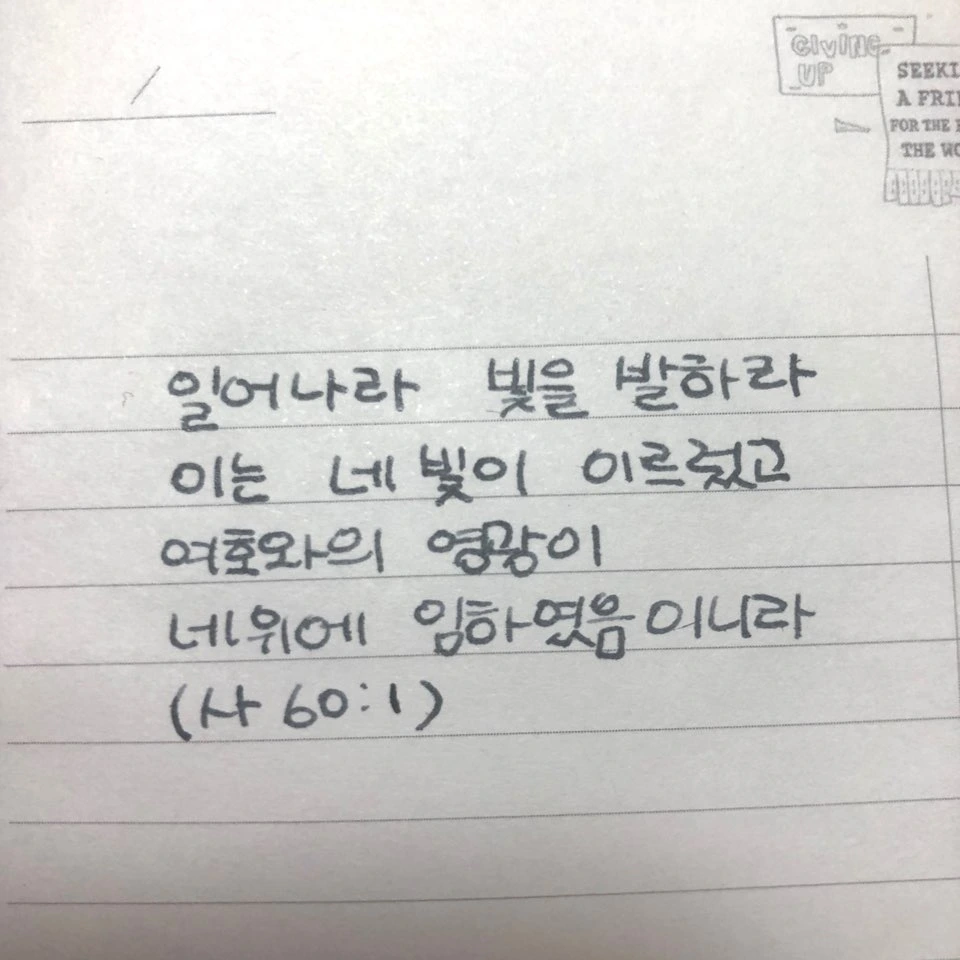 GIVING
UP
SEEKI
A FRI
FOR THE
THE WO
일어나라 빛을 발하라
이는 네 빛이 이르렀고
여호와의 영광이
네 위에 임하였음이니라
(사 60:1)